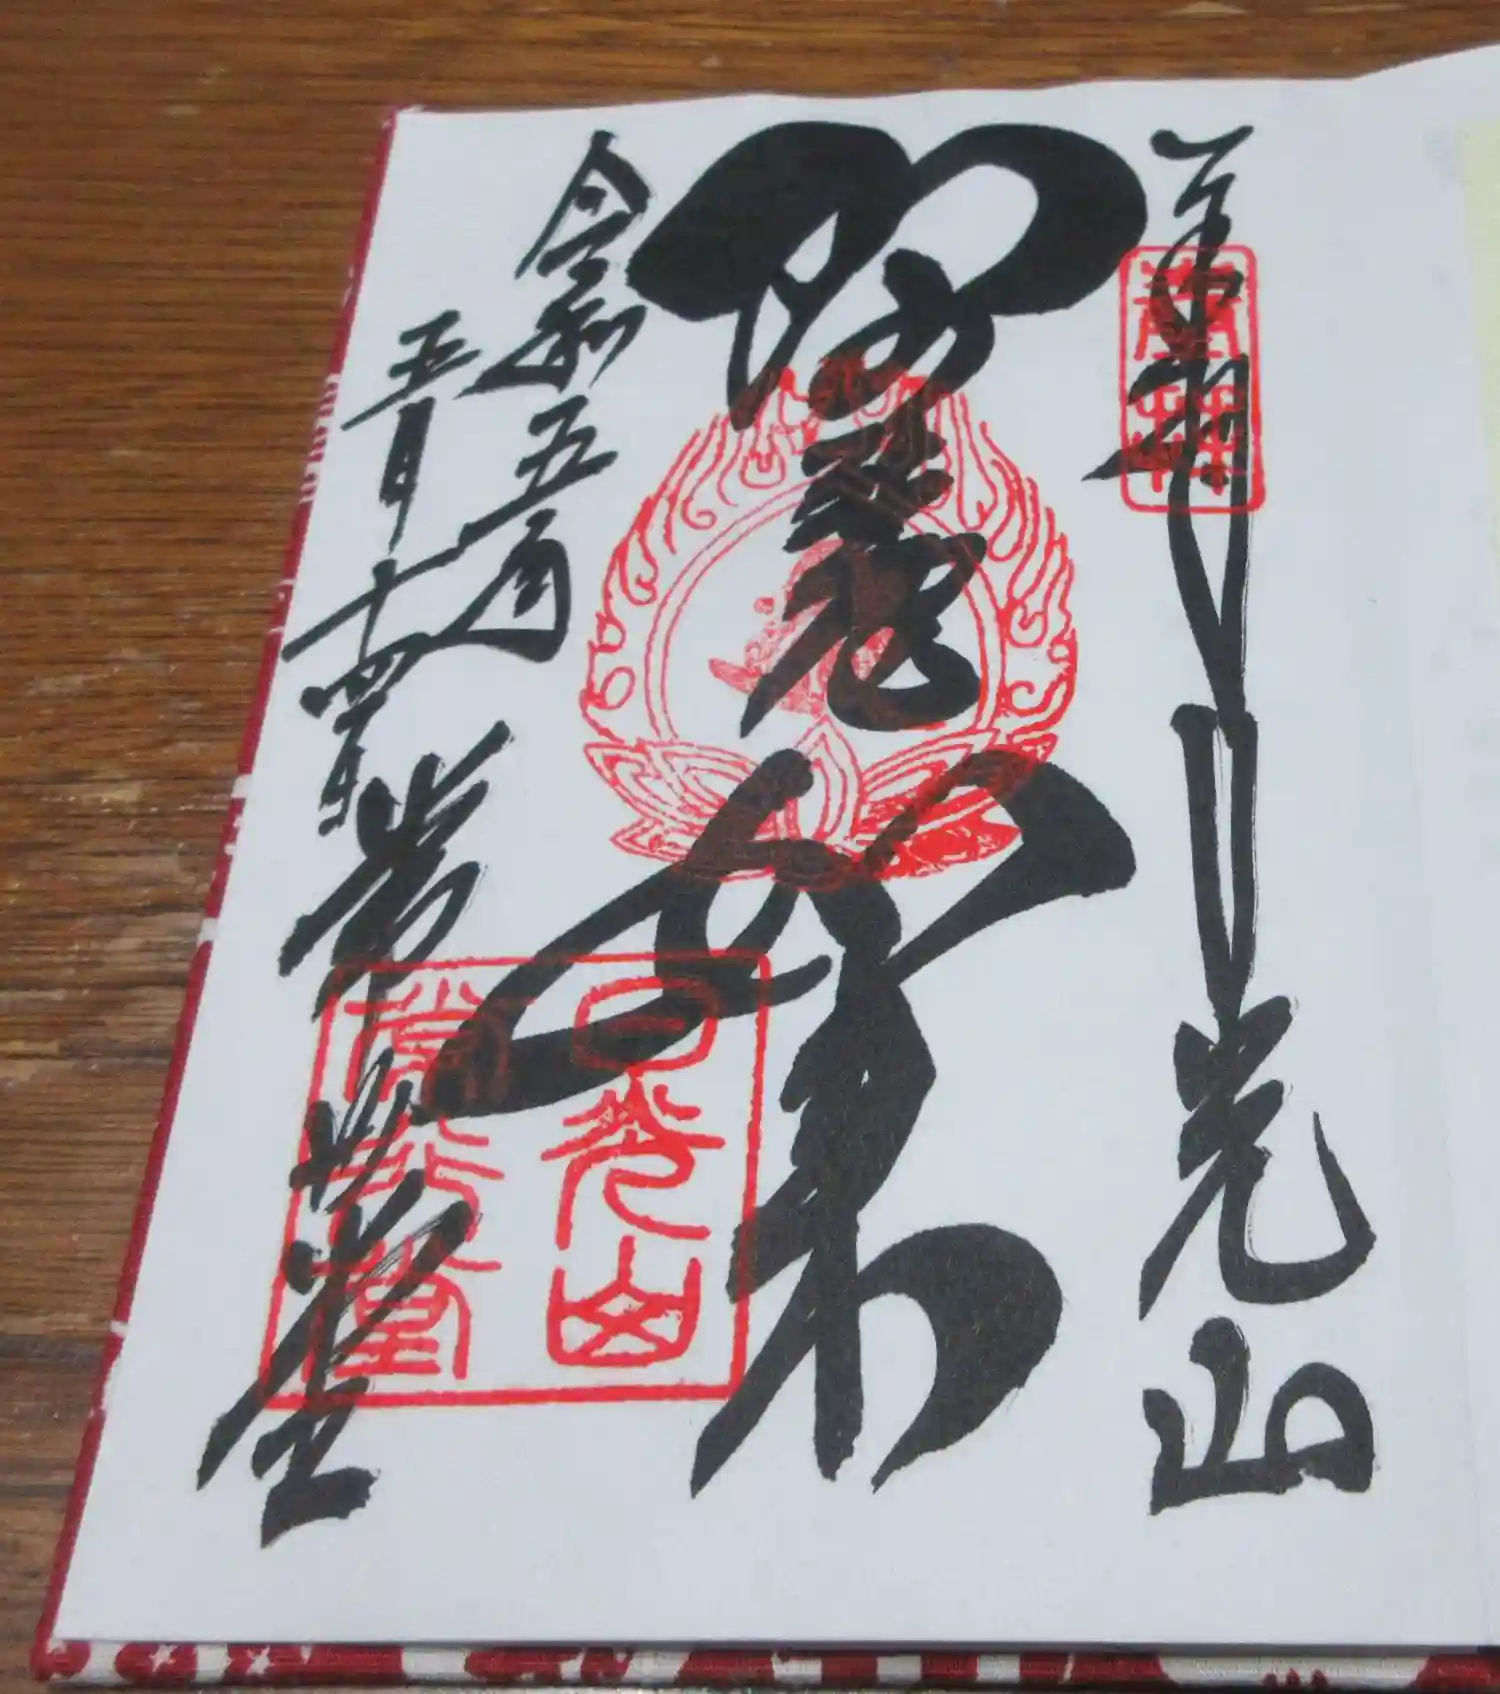 奉拝 日光山
奉拝
阿弥陀如来
令和五年
五月十四日
常行堂
日光山
常行堂